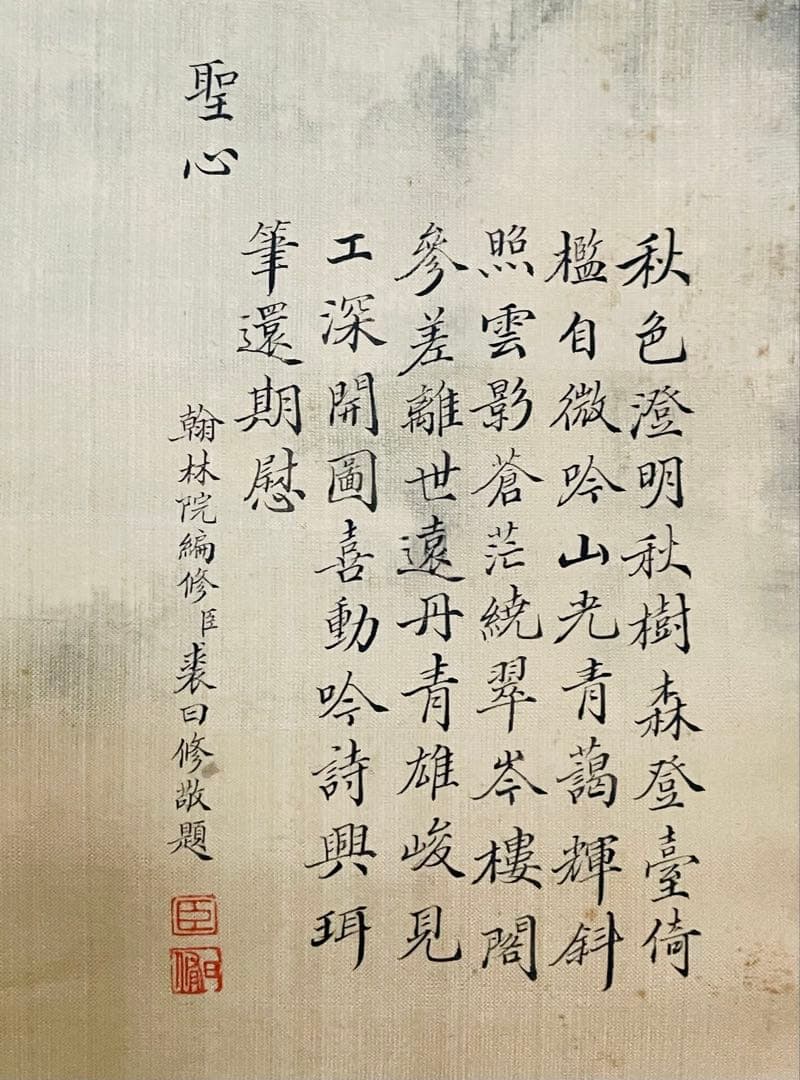 秋色澄明秋樹森登臺倚
檻自微吟山光青藹輝斜
照雲影蒼茫繞翠岑樓閣
參差離世遠丹青雄峻見
工深開圖喜動吟詩興珥
筆還期慰
聖心
翰林院編修臣裘曰修敬題
臣
曰修